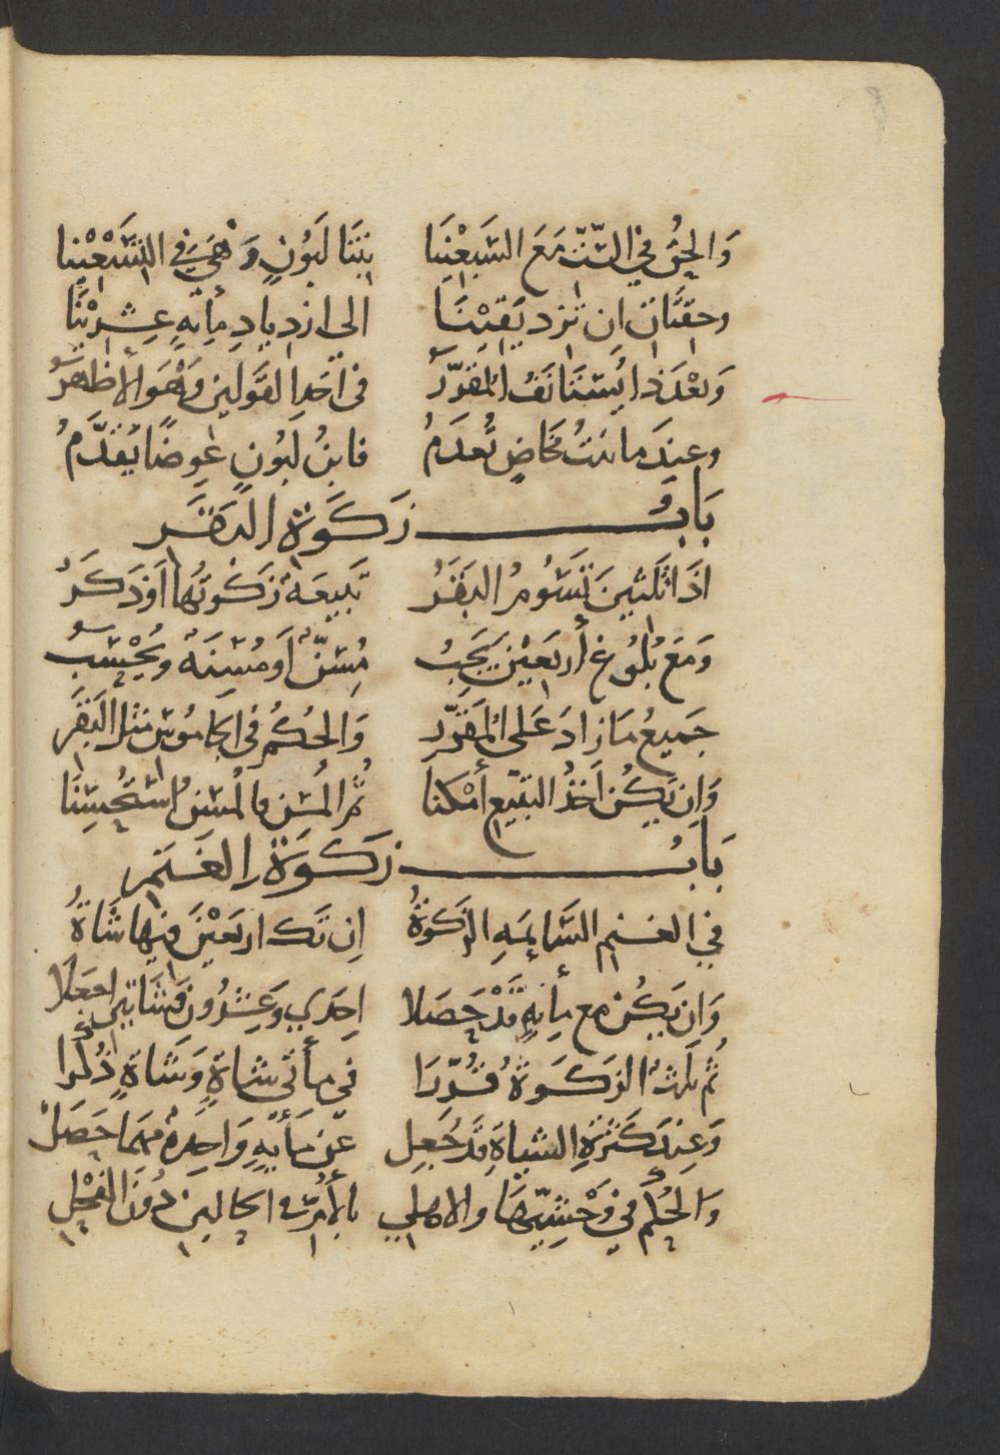 وَالحِقُّ فِي السِّتّ مَعَ السَّبْعِيْنَا بِنْتَا لَبُونٍ وَهْيَ فِي التِّسْعِيْنا
وحقتَانِ ان تزد يَقِيْنَا الى ازديادِ مِأَيةٍ عِشرِيْنَا
وَبعْدَ ذا يُستَأنَفُ المقَرَّرُ في احَدِ القَولَينِ وَهْوَ الأظهَرُ
وعِندَ ما بنتُ مخَاضٍ تُعدَمُ فابنُ لَبُونٍ عِوضًا يُقدَّمُ
بَابُ زَكَوة البَقَر
اذَا ثلثينَ تَسُومُ البَقَرُ تَبِيعَةٌ زَكَوتُها اَو ذَكَرُ
وَمَع بُلُوغِ أربَعِيْنَ يَجِبُ مُسِنٌّ اَو مُسِنَةٌ ويُحْسَبُ
جَمِيعُ مَا زادَ عَلى المقَرَّرِ وَالحُكمُ في الجَامُوسِ مثل البَقَرِ
وَان يَكُن اَخذُ التبيع أمْكنا ثُم المُسن فالمُسنُ استُحْسِنَا
بَابُ زَكَوَة الغَنَم
في الغنم السَّايمَةِ الزكوةُ اِن تَك اربَعيْنَ فيها شَاةُ
وَان يَكُن مع مأيةٍ قَدْ حَصَلا اِحدي وَعِشرُون فشَاتين اجعَلا
ثُم ثَلثُ الزكَوة قُرّرَا في مأتي شاةٍ وَشَاةٍ ذُكرا
وَعِندَ كَثرَةِ الشياةِ قد جُعِل عَن مأيةٍ وَاحِدةٌ مهمَا حَصَلْ
وَالحُكمُ في وَحْشِيّهَا والاهلي بالأمّ في الحالين دُونَ الفَحْلِ